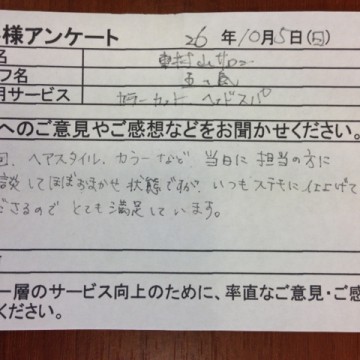 様アンケート 26年10月5日(日)
名 東村山サロン
フ名
用サービス カラーカット ヘッドスパ
へのご意見やご感想などをお聞かせください。
回、ヘアスタイル、カラーなど、当日に担当の方に
談してほぼおまかせ状態ですが、いつもステキに仕上げて
ださるので とても満足しています。
一層のサービス向上のために、率直なご意見・ご感
ください。